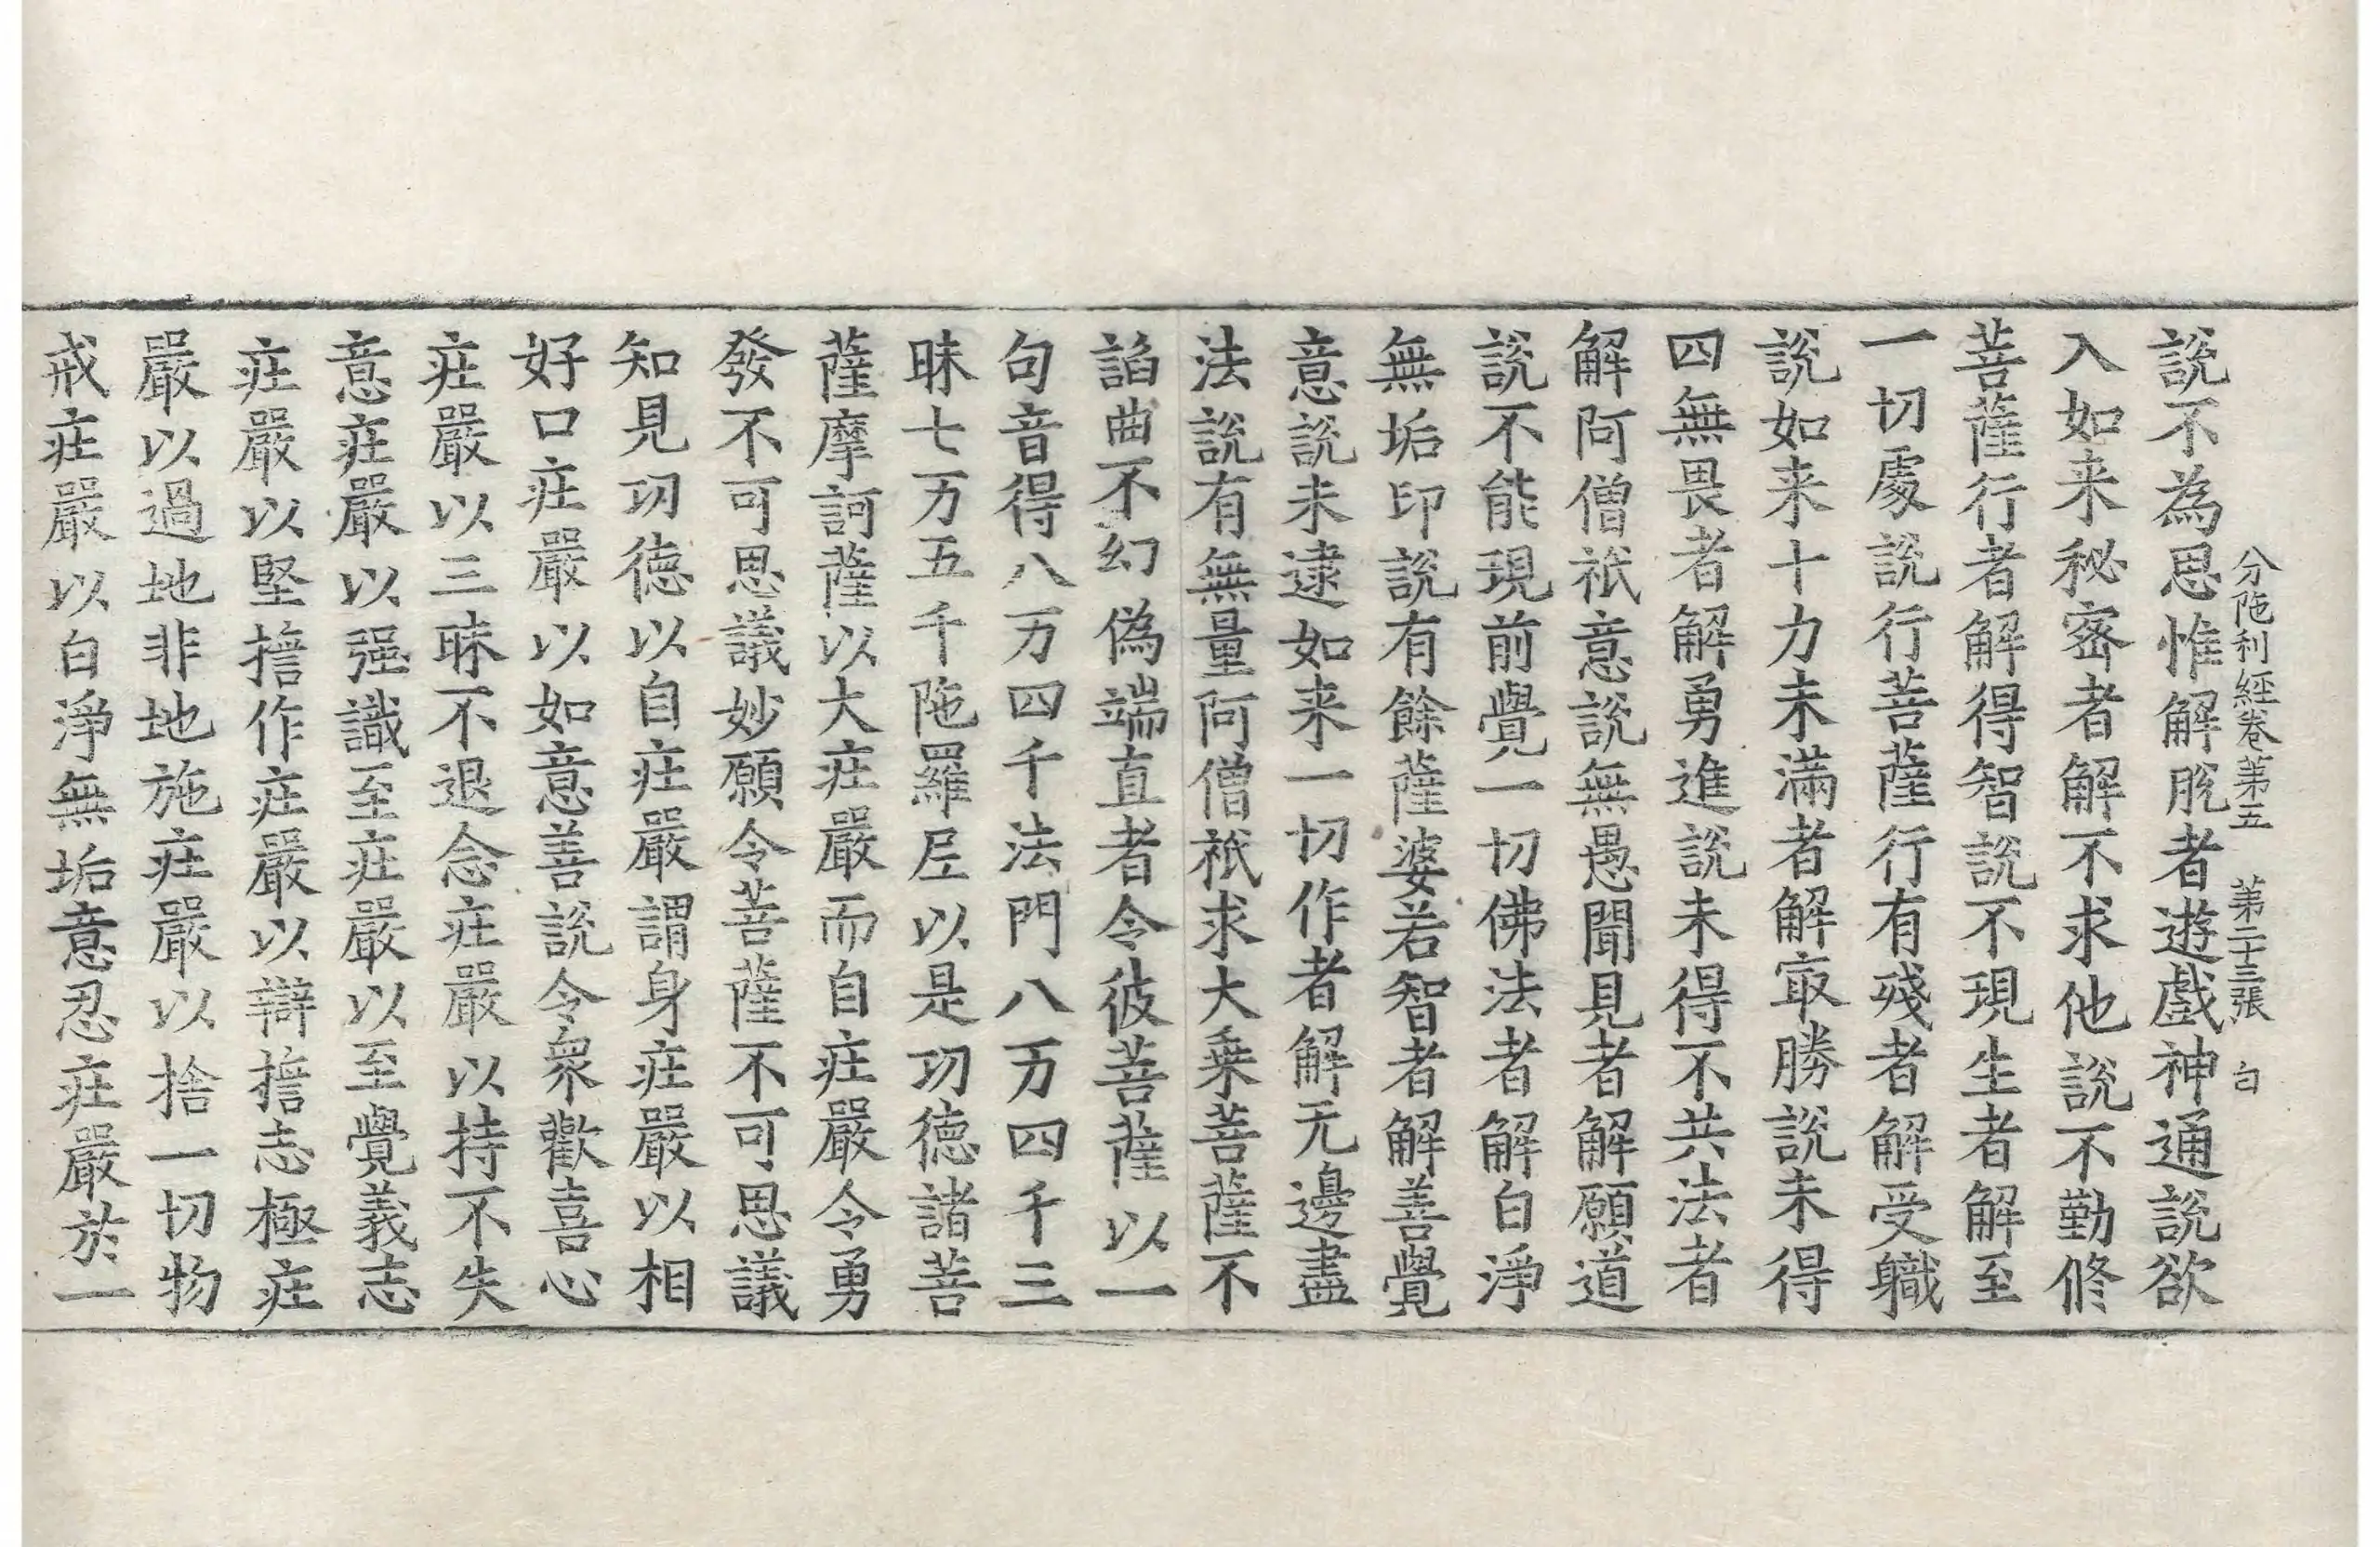 分陁利經卷第五　第二十三張　白
說不為思惟解脫者遊戲神通說欲
入如来秘密者解不求他說不勤修
菩薩行者解得智說不現生者解至
一切處說行菩薩行有殘者解受職
說如来十力未滿者解㝡勝說未得
四無畏者解勇進說未得不共法者
解阿僧祇意說無愚聞見者解願道
說不能現前覺一切佛法者解白淨
無垢印說有餘薩婆若智者解善覺
意說未逮如来一切作者解无邊盡
法說有無量阿僧祇求大乘菩薩不
諂曲不幻偽端直者令彼菩薩以一
句音得八万四千法門八万四千三
昧七万五千陁羅尼以是功德諸菩
薩摩訶薩以大庄嚴而自庄嚴令勇
發不可思議妙願令菩薩不可思議
知見功德以自庄嚴謂身庄嚴以相
好口庄嚴以如意善說令衆歡喜心
庄嚴以三昧不退念庄嚴以持不失
意庄嚴以强識至庄嚴以至覺義志
庄嚴以堅擔作庄嚴以辯擔志極庄
嚴以過地非地施庄嚴以捨一切物
戒庄嚴以白淨無垢意忍庄嚴於一